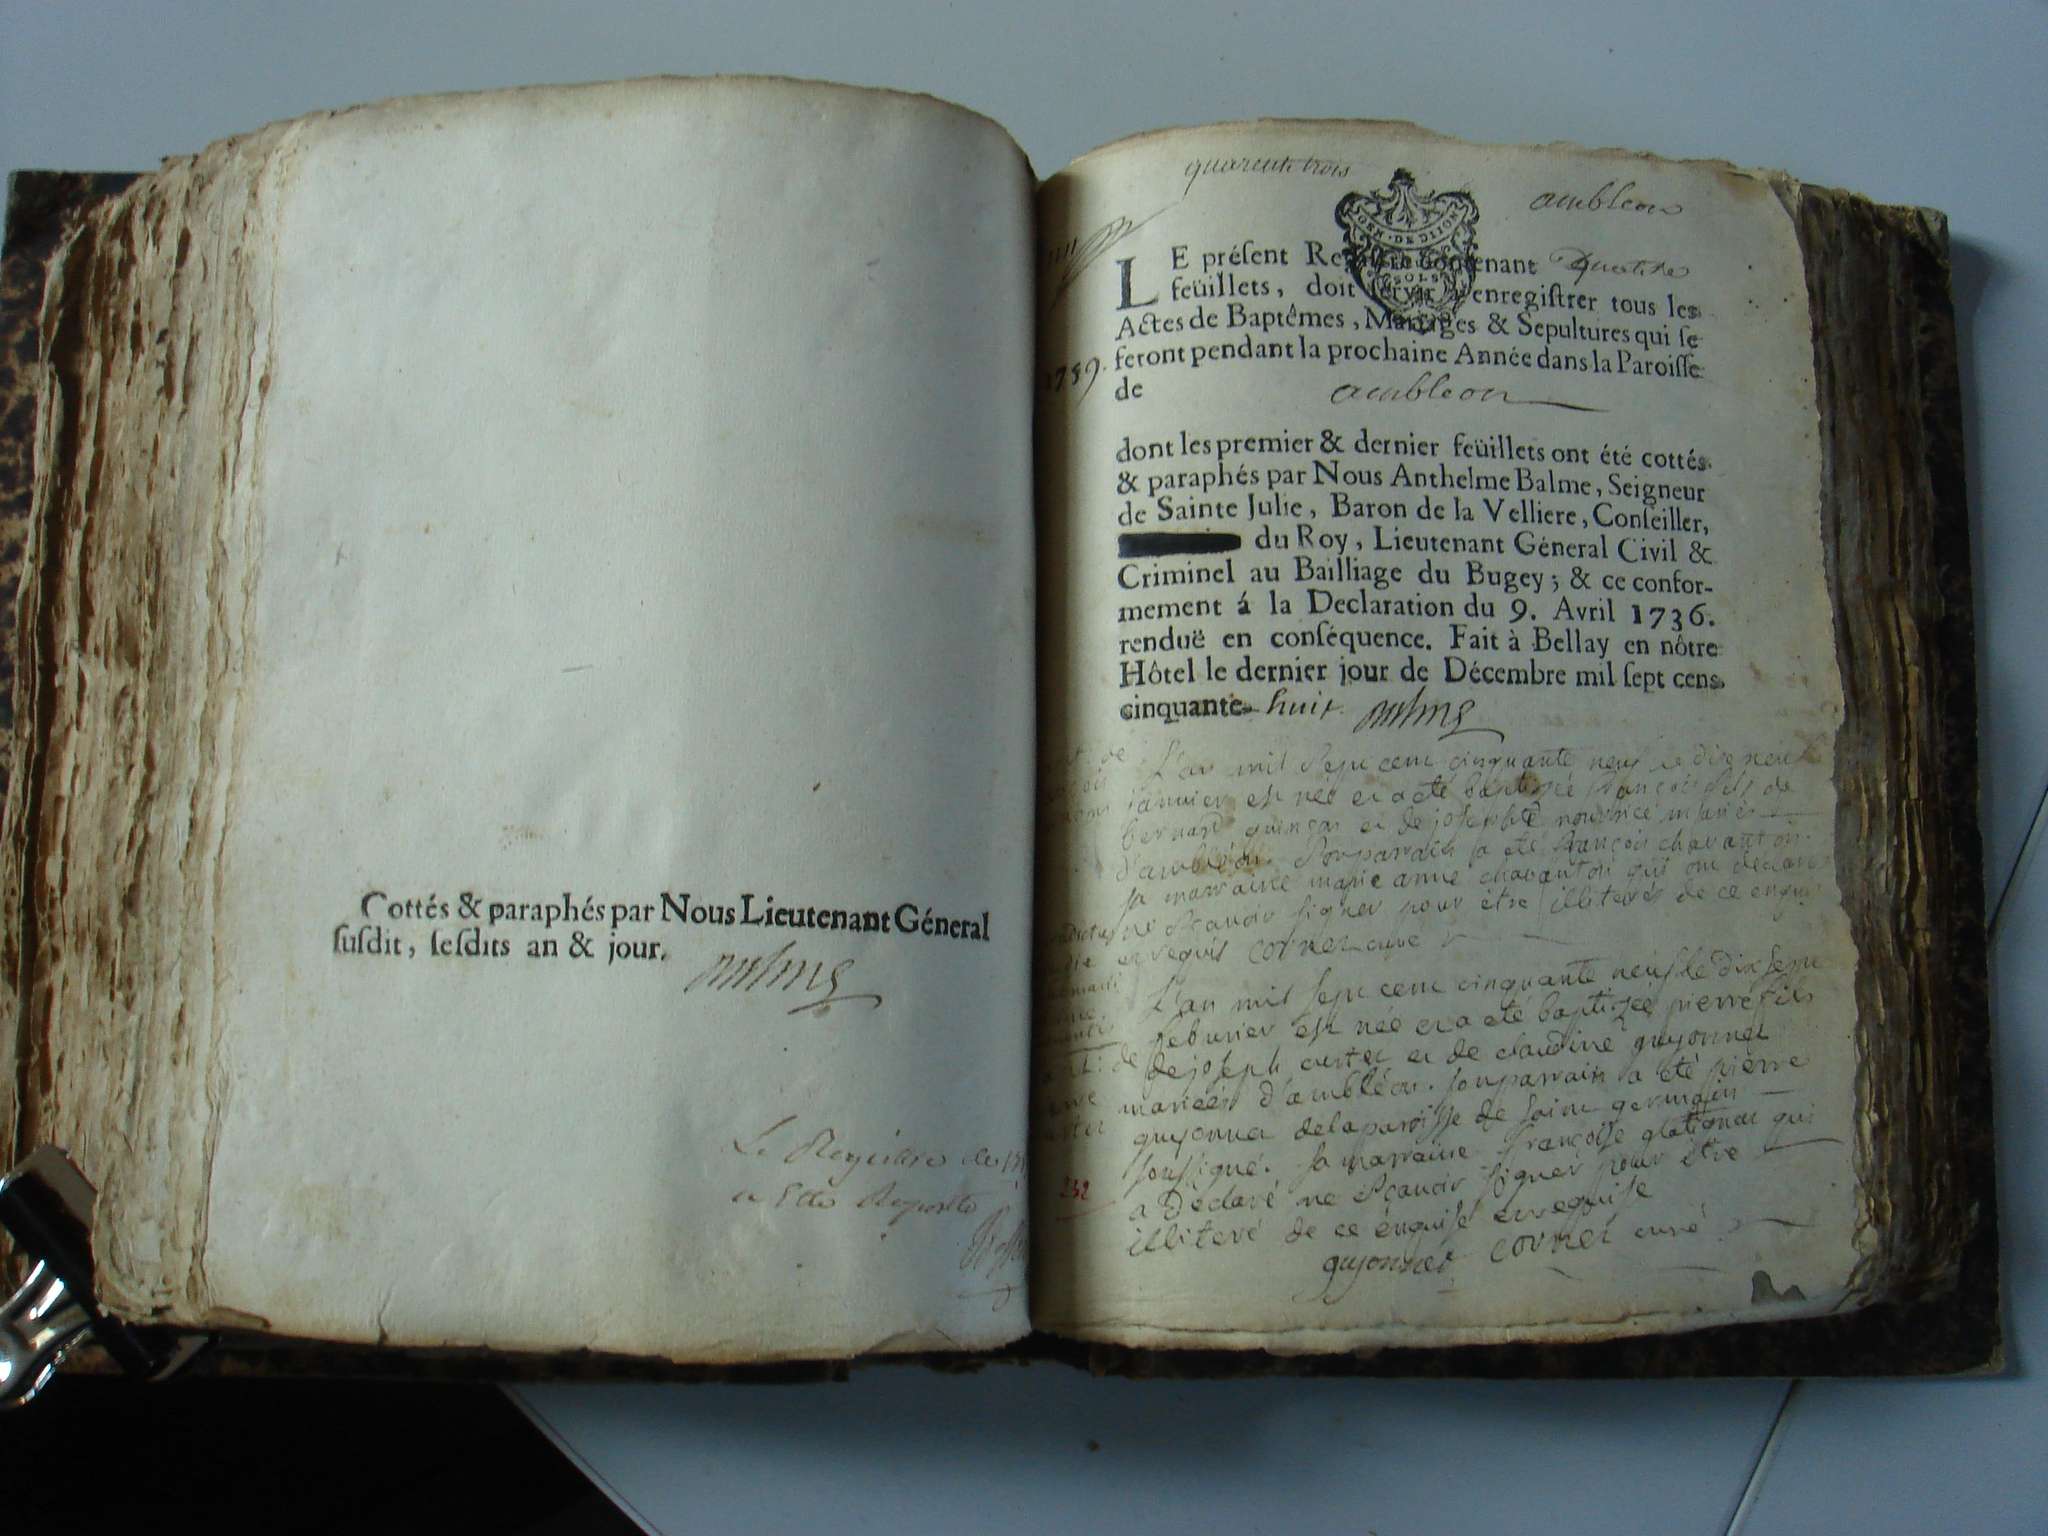 Cottés & paraphés par Nous Lieutenant Géneral
susdit, sesdits an & jour.
Le Registre de
a Ette
quarente trois
ambleon
GEN. DE DIJON
SOLS
LE présent Registre contenant quatre
feüillets, doit servir à enregistrer tous les
Actes de Baptêmes, Mariages & Sepultures qui se
feront pendant la prochaine Année dans la Paroisse
1759.
de ambleon
dont les premier & dernier feüillets ont été cottés
& paraphés par Nous Anthelme Balme, Seigneur
de Sainte Julie, Baron de la Velliere, Conseiller,
du Roy, Lieutenant Géneral Civil &
Criminel au Bailliage du Bugey; & ce confor-
mement á la Declaration du 9. Avril 1736.
renduë en conséquence. Fait à Bellay en nôtre
Hôtel le dernier jour de Décembre mil sept cens
cinquante-huit.
L'an mil Sept cent cinquante neuf le dix neuf
janvier est née et a eté baptisé françois fils de
bernard quinson et de josephte nourrice mariés
d'ambléon. Son parrain a eté françois chavanton
sa marraine marie anne chavanton qui ont declaré
ne Sçavoir signer pour être illiterés de ce enquis
et requis cornet curé
L'an mil sept cent cinquante neuf le dix sept
feburier est née et a eté baptizée pierre fils
de joseph curtet et de claudine guyonnet
mariés d'ambléon. son parrain a eté pierre
guyonnet de la paroisse de saint germain
soussigné. sa marraine françoise qui
a Déclaré ne Sçavoir signer pour être
illiteré de ce enquise et requise
guyonnet cornet curé
232